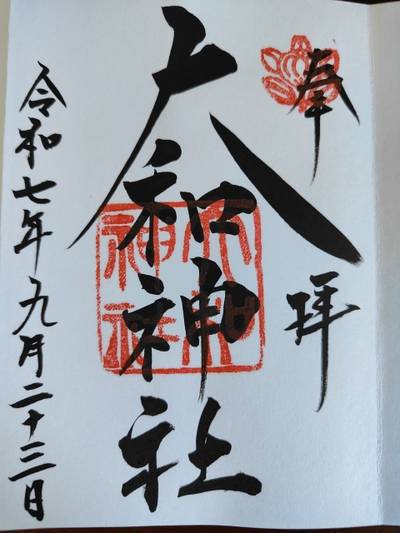 奉拝
大和神社
令和七年九月二十三日